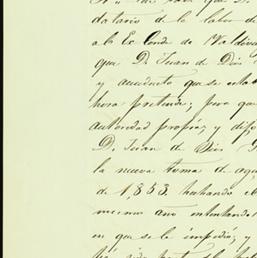 datario de la labor de
al Ex Conde de Valdiv
que D. Juan de Dios
y acueducto que se esta
hora pretende; pero que
autoridad propia; y dispo
D. Juan de Dios
la nueva toma de agu
de 1,853 habiendo el
mismo año intentando
en que se le impidió; y